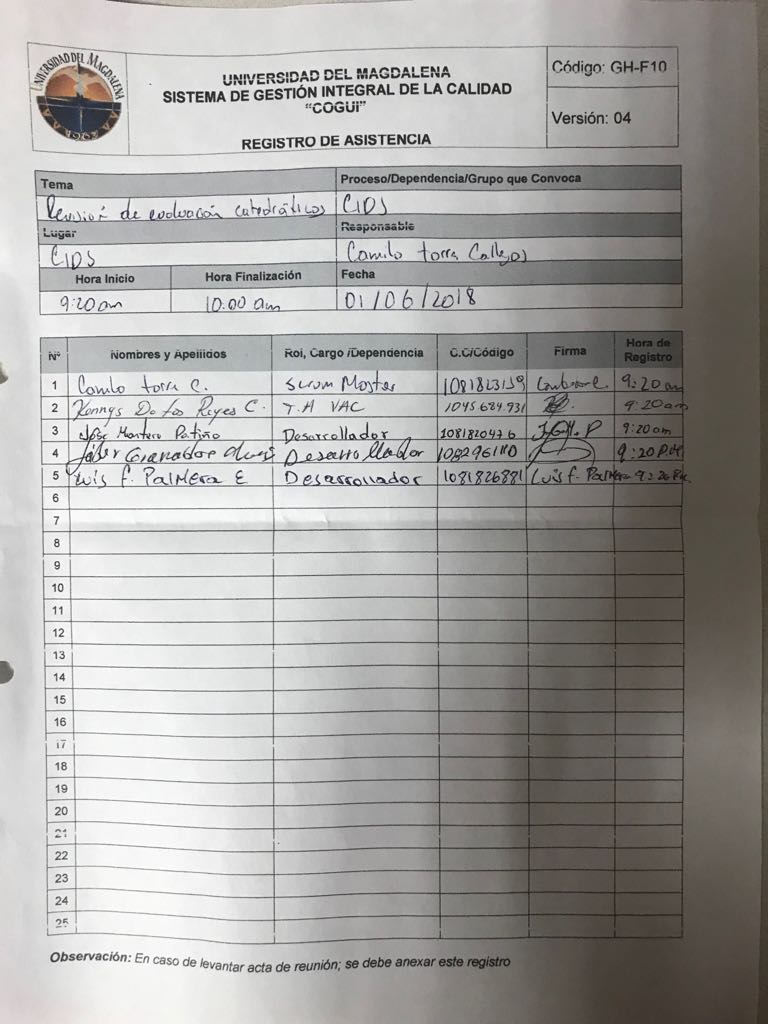 UNIVERSIDAD DEL MAGDALENA
1962
UNIVERSIDAD DEL MAGDALENA
SISTEMA DE GESTIÓN INTEGRAL DE LA CALIDAD
"COGUI"
REGISTRO DE ASISTENCIA
Código: GH-F10
Versión: 04
Tema Proceso/Dependencia/Grupo que Convoca
Revisión de evaluación catedráticos CIDS
Lugar Responsable
CIDS Camilo torres
Hora Inicio Hora Finalización Fecha
9:20 am 10:00 am 01/06/2018
N° Nombres y Apellidos Rol, Cargo /Dependencia C.C/Código Firma Hora de Registro
1 Camilo torre C. Scrum Master 9:20 am
2 Kennys De Los Reyes C. T.A VAC 1045684931 9:20am
3 José Montero Patiño Desarrollador 1081820476 9:20am
4 Granados Desarrollador 9:20 P.M
5 Luis f. PalMera E Desarrollador 1081826881 Luis f. PalMera
6
7
8
9
10
11
12
13
14
15
16
17
18
19
20
21
22
23
24
25
Observación: En caso de levantar acta de reunión; se debe anexar este registro